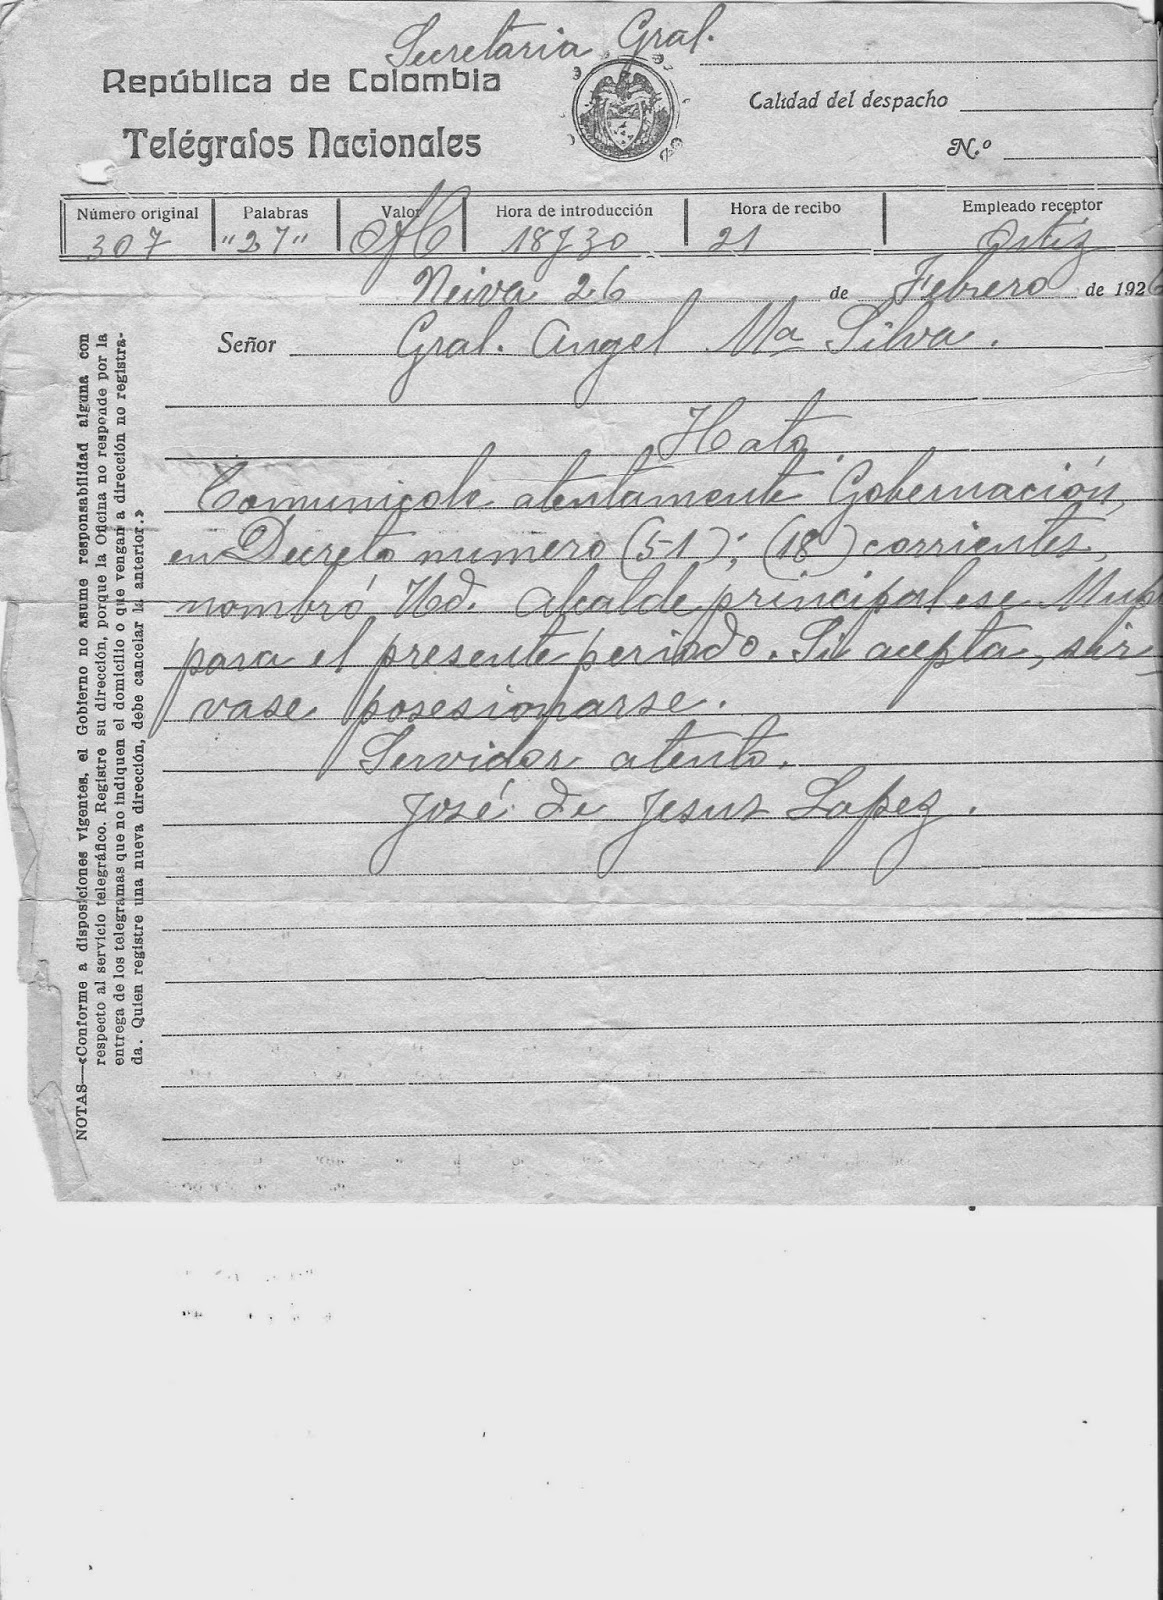 Secretaria Gral.
República de Colombia
Telégrafos Nacionales
Calidad del despacho
N.º
Número original Palabras Valor Hora de introducción Hora de recibo Empleado receptor
307 "27" 18 y 30 21 Ortiz
Neiva 26 de Febrero de 1926
Señor Gral. Angel Mª Silva.
Hato.
Comunicole atentamente Gobernación,
en Decreto numero (51); (18) corrientes,
nombró Ud. Alcalde principal ese Mupo
para el presente periodo. Si acepta, sir-
vase posesionarse.
Servidor atento.
José de Jesus Lopez.
NOTAS—«Conforme a disposiciones vigentes, el Gobierno no asume responsabilidad alguna con
respecto al servicio telegráfico. Registre su dirección, porque la Oficina no responde por la
entrega de los telegramas que no indiquen el domicilio o que vengan a dirección no registra-
da. Quien registre una nueva dirección, debe cancelar la anterior.»